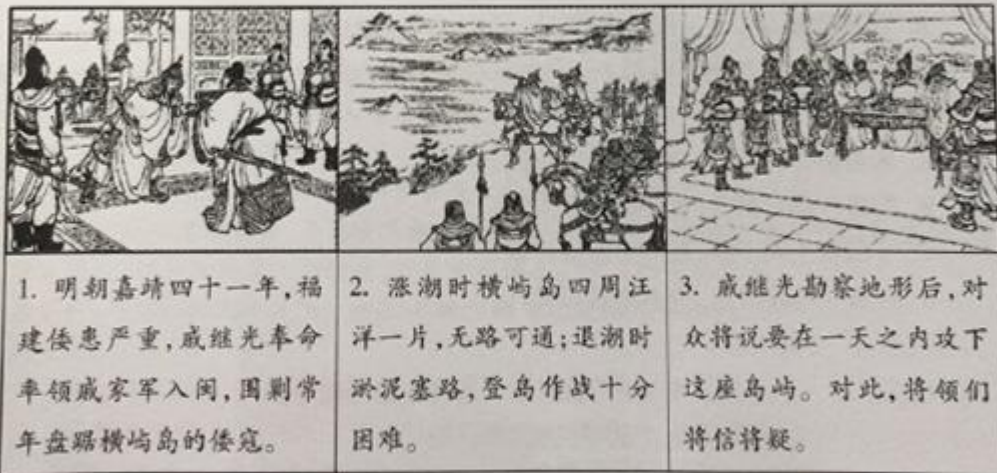 1. 明朝嘉靖四十一年,福
建倭患严重,戚继光奉命
率领戚家军入闽,围剿常
年盘踞横屿岛的倭寇。
2. 涨潮时横屿岛四周汪
洋一片,无路可通;退潮时
淤泥塞路,登岛作战十分
困难。
3. 戚继光勘察地形后,对
众将说要在一天之内攻下
这座岛屿。对此,将领们
将信将疑。